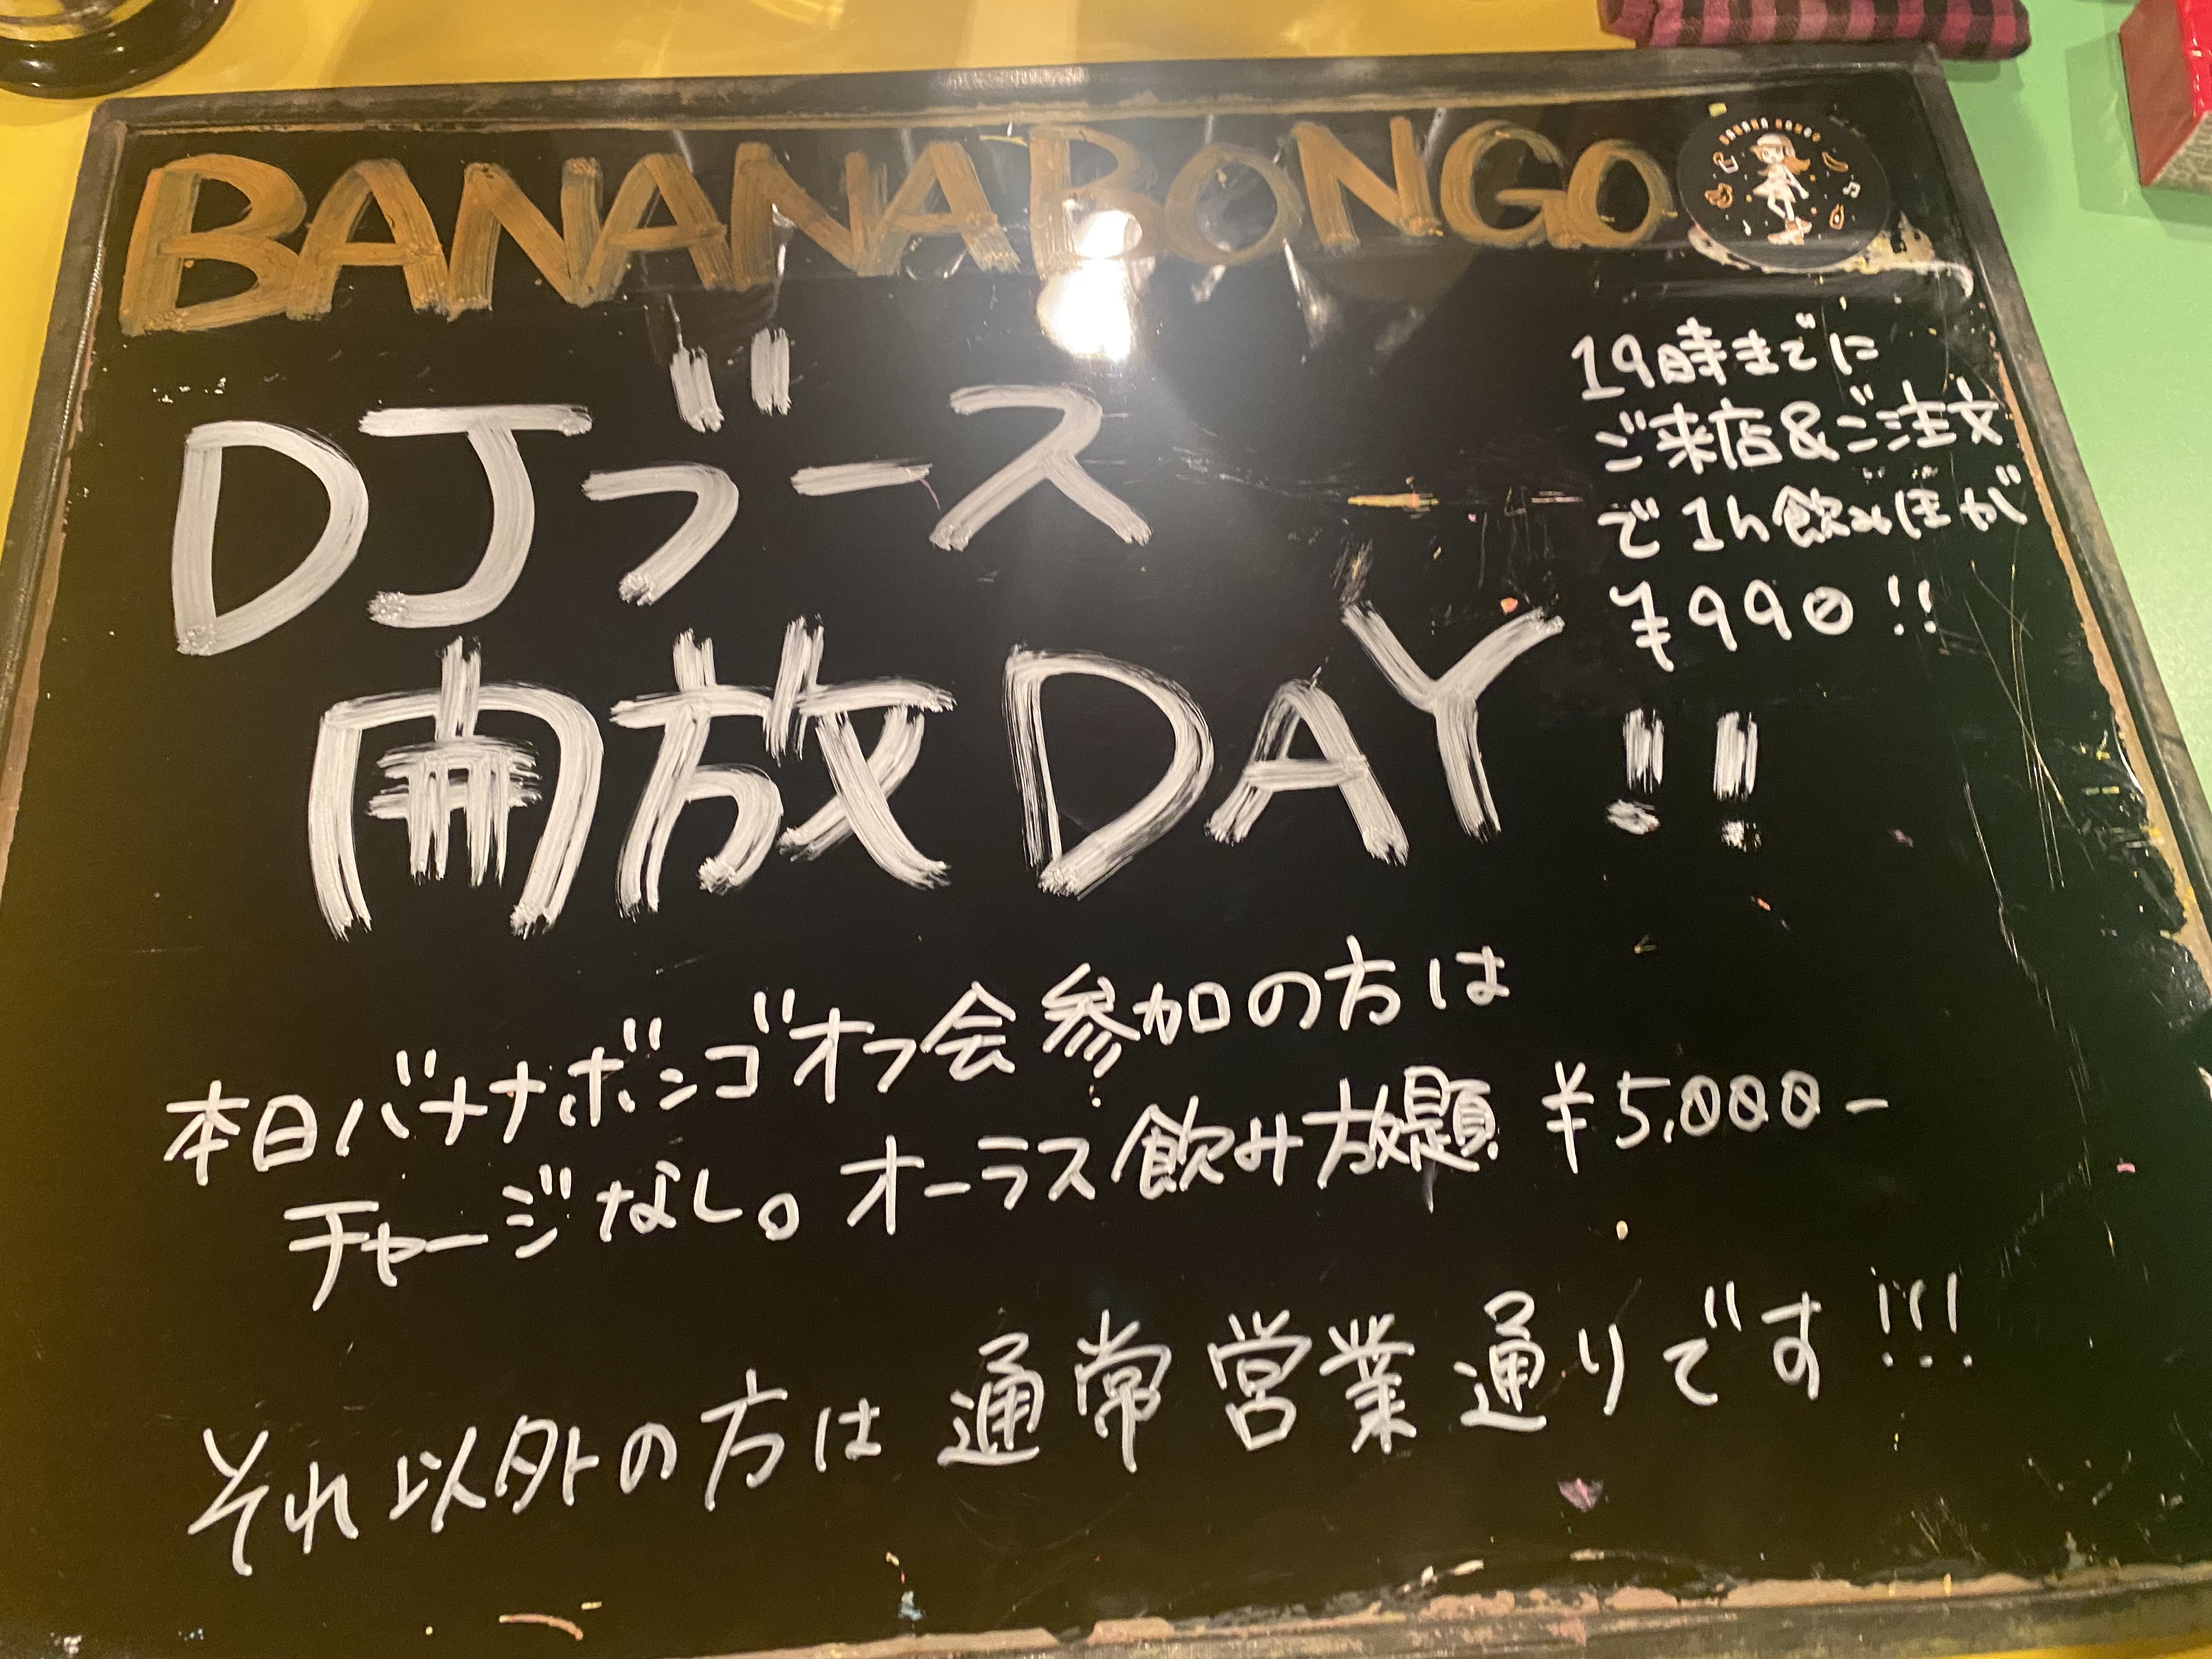 BANANA BONGO
BANANA BONGO
19時までに
ご来店&ご注文
で1h飲みほが
¥990!!
DJブース
開放DAY!!
本日バナナボンゴオフ会参加の方は
チャージなし。オーラス飲み放題 ¥5,000-
それ以外の方は通常営業通りです!!!